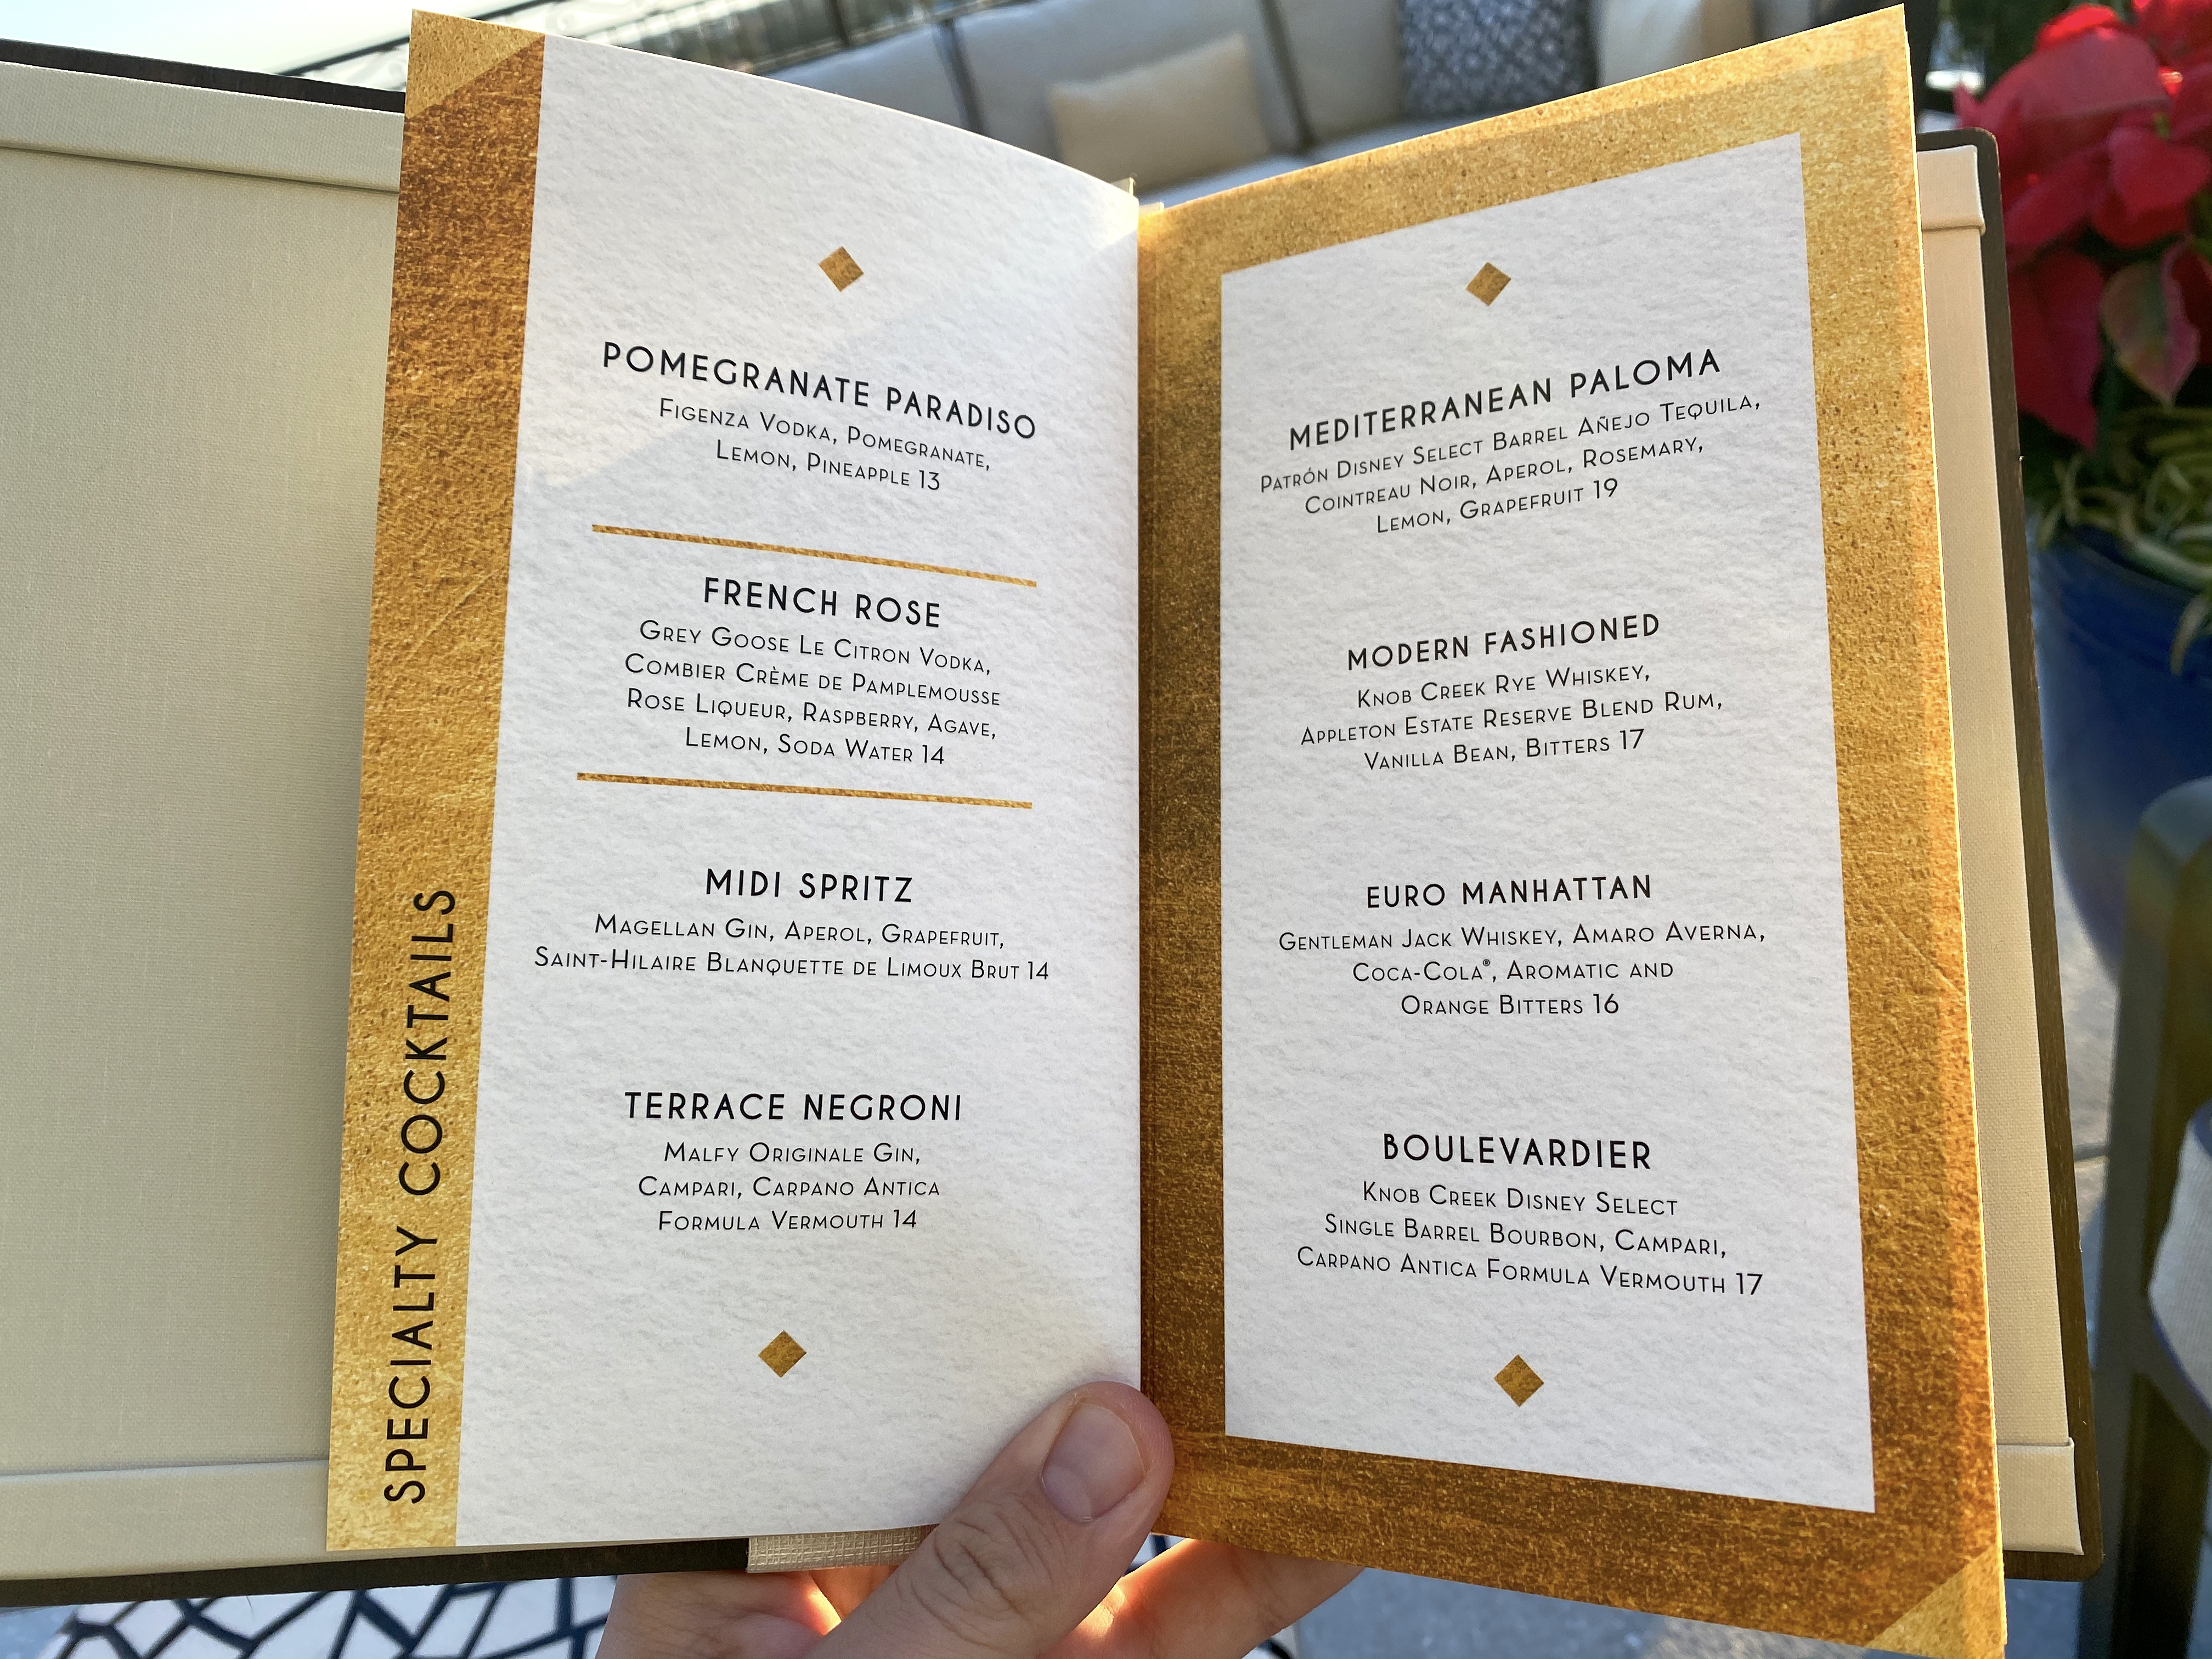 SPECIALTY COCKTAILS
POMEGRANATE PARADISO
FIGENZA VODKA, POMEGRANATE,
LEMON, PINEAPPLE 13
FRENCH ROSE
GREY GOOSE LE CITRON VODKA,
COMBIER CRÈME DE PAMPLEMOUSSE
ROSE LIQUEUR, RASPBERRY, AGAVE,
LEMON, SODA WATER 14
MIDI SPRITZ
MAGELLAN GIN, APEROL, GRAPEFRUIT,
SAINT-HILAIRE BLANQUETTE DE LIMOUX BRUT 14
TERRACE NEGRONI
MALFY ORIGINALE GIN,
CAMPARI, CARPANO ANTICA
FORMULA VERMOUTH 14
MEDITERRANEAN PALOMA
PATRÓN DISNEY SELECT BARREL AÑEJO TEQUILA,
COINTREAU NOIR, APEROL, ROSEMARY,
LEMON, GRAPEFRUIT 19
MODERN FASHIONED
KNOB CREEK RYE WHISKEY,
APPLETON ESTATE RESERVE BLEND RUM,
VANILLA BEAN, BITTERS 17
EURO MANHATTAN
GENTLEMAN JACK WHISKEY, AMARO AVERNA,
COCA-COLA®, AROMATIC AND
ORANGE BITTERS 16
BOULEVARDIER
KNOB CREEK DISNEY SELECT
SINGLE BARREL BOURBON, CAMPARI,
CARPANO ANTICA FORMULA VERMOUTH 17